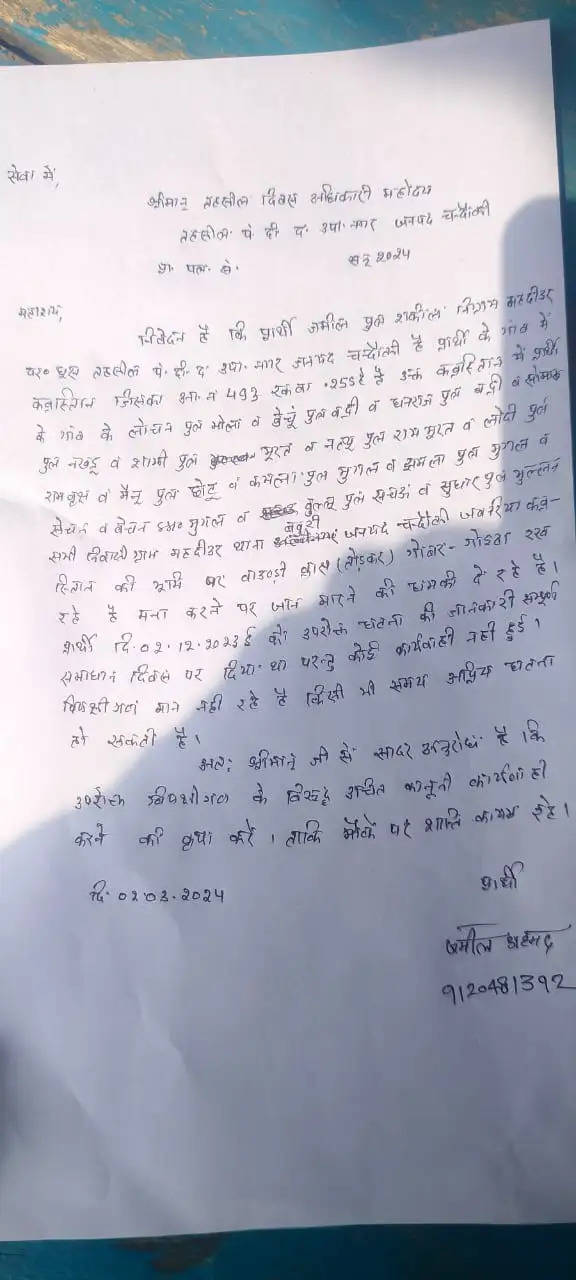 सेवा में,
श्रीमान् तहसील दिवस अधिकारी महोदय
तहसील- पं दी द उपा. नगर जनपद चन्दौली
प्रा. पत्र. सं. सन् 2024
महाशय,
निवेदन है कि प्रार्थी जमील पुत्र शकील निग्राम महदीउर
पर० तहसील पं. दी. द उपा. नगर जनपद चन्दौली है प्रार्थी के गांव में
कब्रस्तिान जिसका आ. नं 493 रकबा .255हे है उक्त कब्रस्तिान में प्रार्थी
के गांव के लोचन पुत्र भोला व पुत्र बद्री व धनराज पुत्र बद्री व सोमारू
पुत्र नखडू व शामी पुत्र मूरत व नत्थू पुत्र राममूरत व लोदी पुत्र
रामवृक्ष व मैनू पुत्र छोटू व कमला पुत्र मुगल व अमला पुत्र मुगल व
सेचन व बेचन मुगल व पुत्र व सुधार पुत्र
सभी निवासी ग्राम महदीउर थाना बबुरी जनपद चन्दौली जबरिया कब्र-
स्तिान की भूमि पर बाउण्ड्री (तोड़कर) गोबर- गोइठा रख
रहे है मना करने पर जान मारने की धमकी दे रहे है।
प्रार्थी दि. 02.12.2023ई को उपरोक्त घटना की जानकारी सम्पूर्ण
समाधान दिवस पर दिया था परन्तु कोई कार्यवाही नही हुई।
विपक्षीगण मान नही रहे है किसी भी समय अप्रिय घटना
हो सकती है।
अतः श्रीमान् जी से सादर अनुरोध है कि
उपरोक्त विपक्षीगण के विरुद्ध उचित कानूनी कार्यवाही
करने की कृपा करें। ताकि मौके पर शान्ति कायम रहे।
दि. 02.03.2024 प्रार्थी
जमील अहमद
9120481392